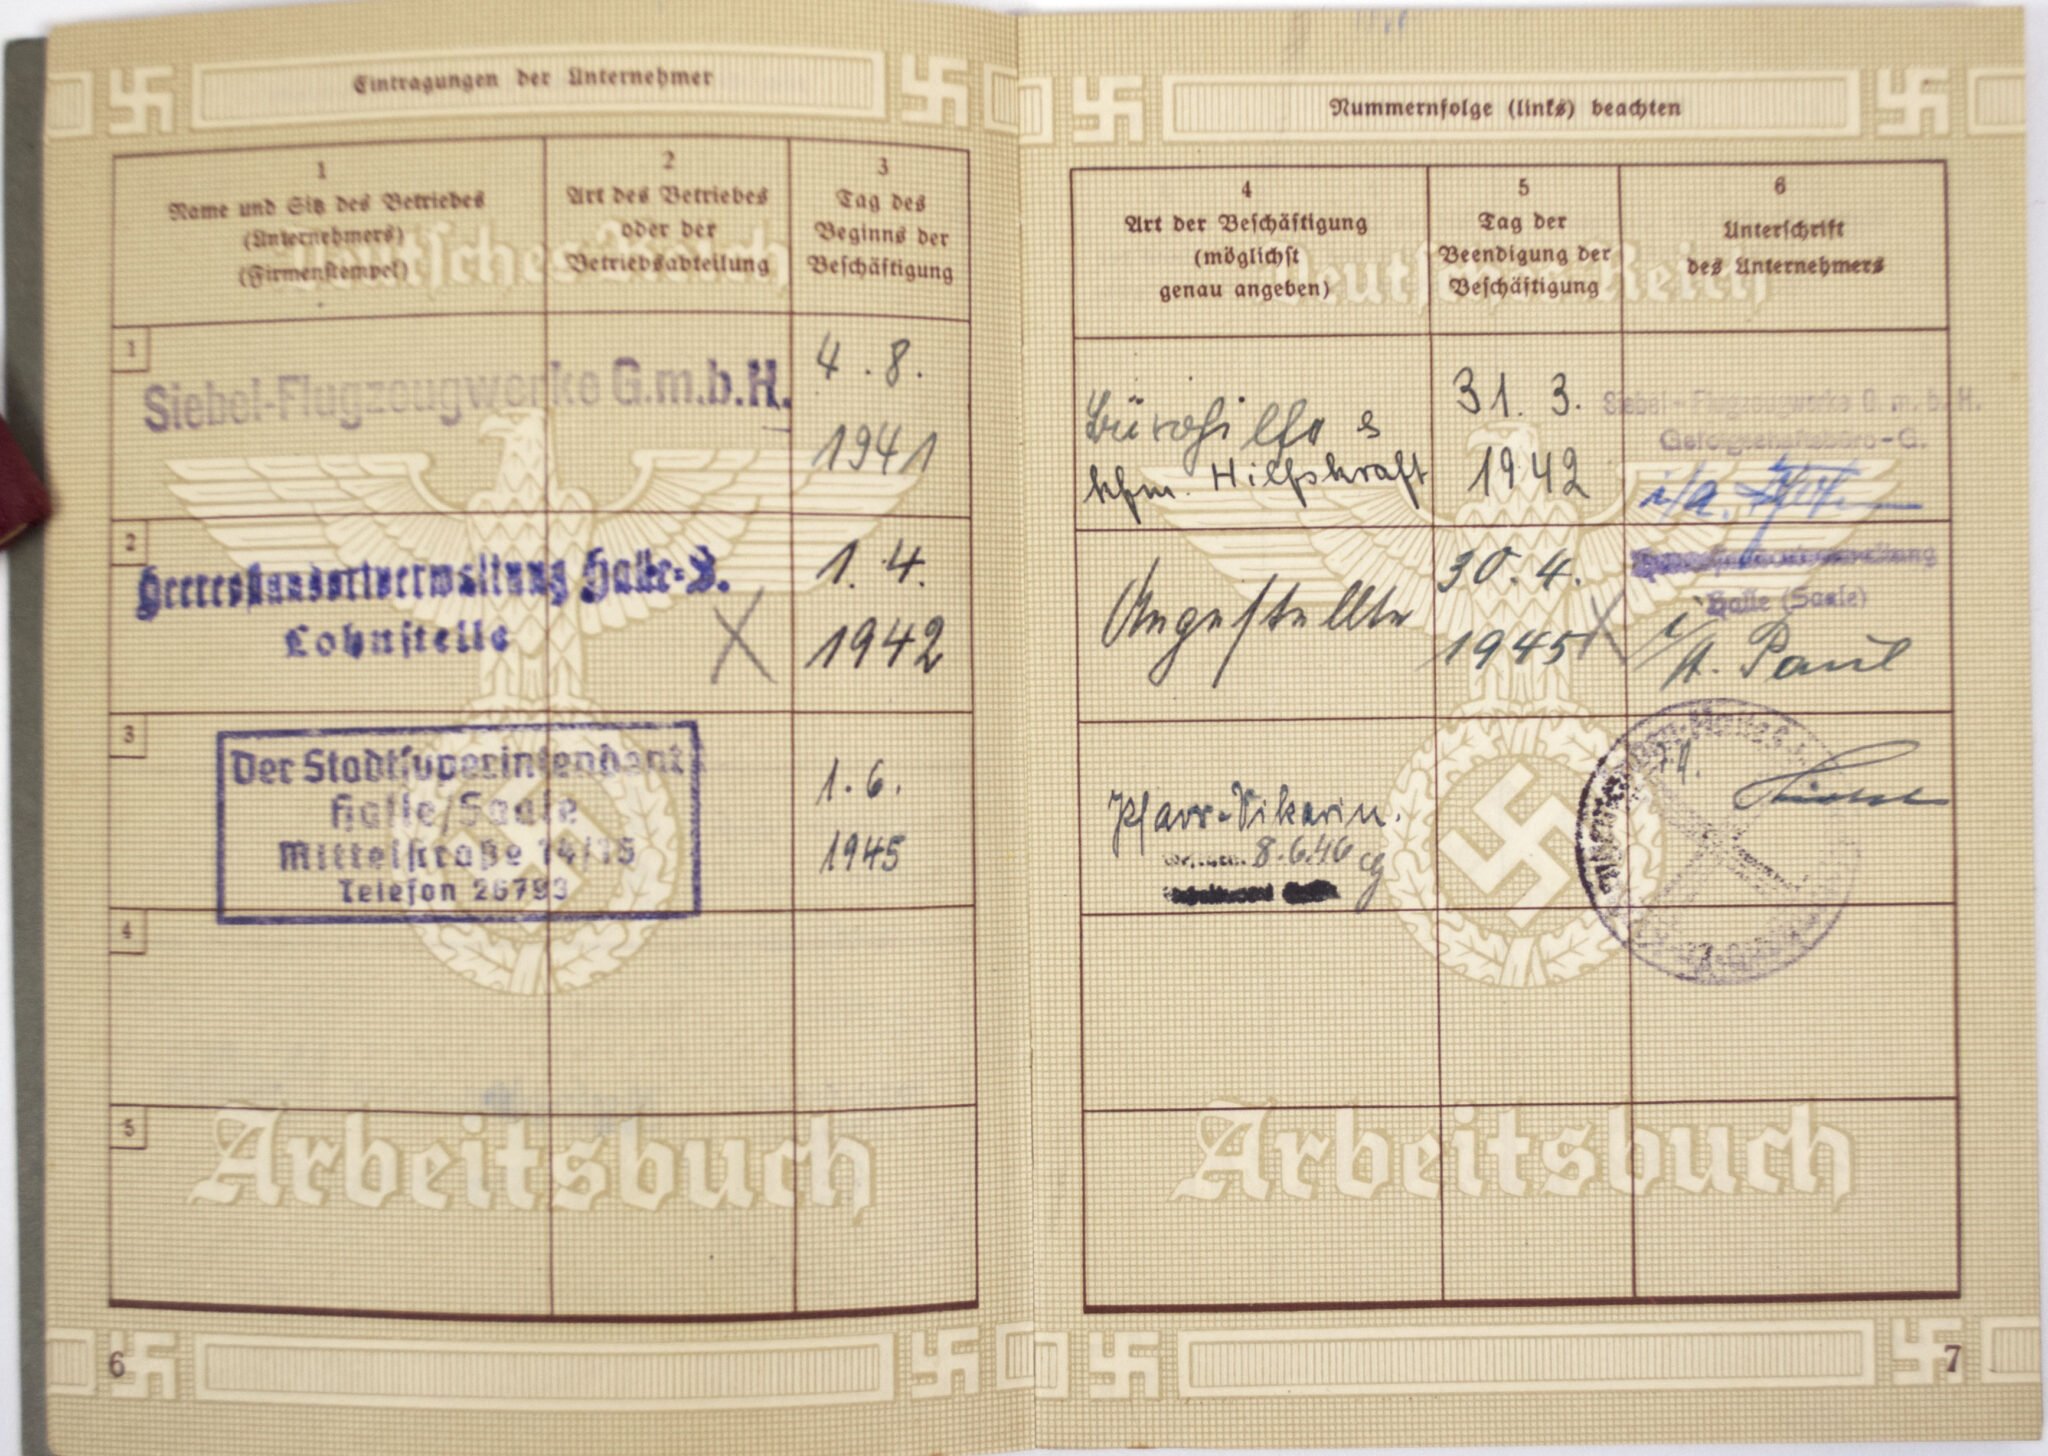 Eintragungen der Unternehmer
1
Name und Sitz des Betriebes
(Unternehmers)
(Firmenstempel)
2
Art des Betriebes
oder der
Betriebsabteilung
3
Tag des
Beginns der
Beschäftigung
Deutsches Reich
1
Siebel-Flugzeugwerke G.m.b.H.
4. 8.
1941
2
Heeresstandortverwaltung Halle-S.
Lohnstelle
1. 4.
1942
3
Der Stadtsuperintendent
Halle/Saale
Mittelstraße 14/15
Telefon 26793
1. 6.
1945
4
5
Arbeitsbuch
6
Nummernfolge (links) beachten
4
Art der Beschäftigung
(möglichst
genau angeben)
5
Tag der
Beendigung der
Beschäftigung
6
Unterschrift
des Unternehmers
Deutsches Reich
Bürohilfe &
kfm. Hilfskraft
31. 3.
1942
Siebel-Flugzeugwerke G.m.b.H.
Gefolgschaftsbüro-G.
i/a.
Angestellte
30. 4.
1945
Halle (Saale)
i/A. Paul
Pfarr-Vikarin.
8.6.46
Arbeitsbuch
7